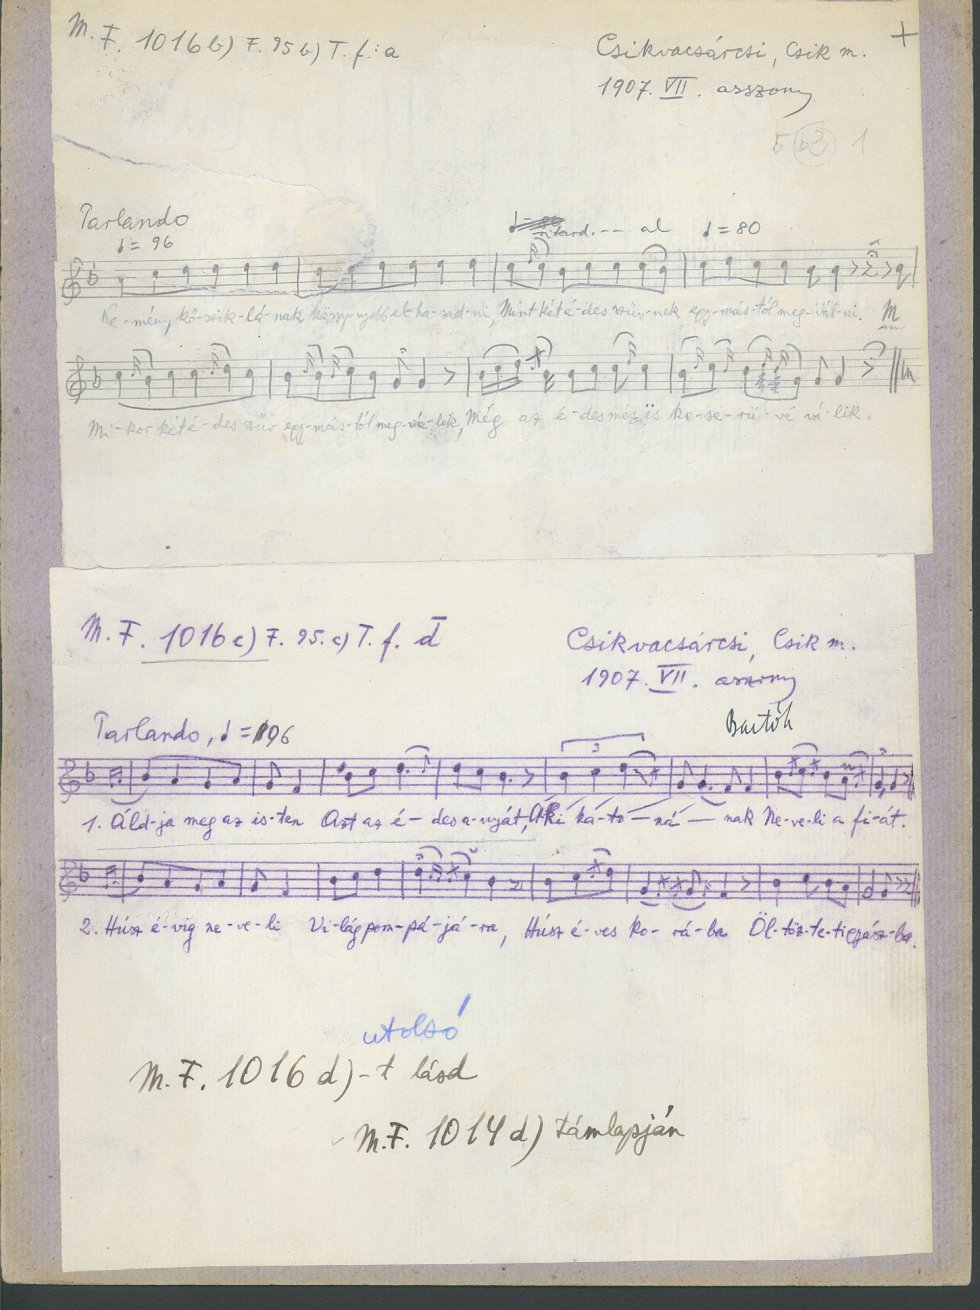 M. F. 1016 b) F. 95 b) T. f.: a
Csikvacsárcsi, Csik m. +
1907. VII. asszony
5 b3 1
Parlando
♩= 96
ritard. - - al ♩= 80
Ke-mény kő-szik-lá-nak könny-nyebb el ha-sad-ni, Mint két é-des szüv-nek egy-más-tól meg-vál-ni.
Mi-kor két é-des szüv egy-más-tól meg-vá-lik, Még az é-des méz ës ke-se-rü-vé vá-lik.
M. F. 1016 c) F. 95. c) T. f. d
Csikvacsárcsi, Csik m.
1907. VII. asszony
Bartók
Parlando, ♩= 96
3
1. Áld-ja meg az is-ten Azt az é-des a-nyát, A-ki ka-to-ná-nak Ne-ve-li a fi-át.
2. Húsz é-vig ne-ve-li Vi-lág pom-pá-já-ra, Húsz é-ves ko-rá-ba Öl-töz-te-ti gyász-ba.
utolsó
M. F. 1016 d)-t lásd
M. F. 1014 d) támlapján